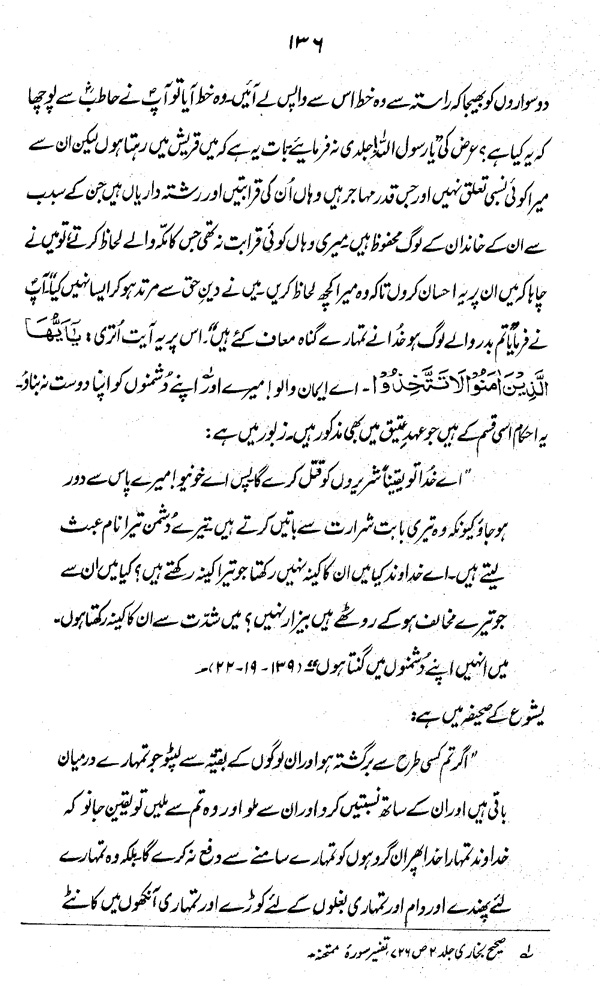 ۱۳۶
دو سواروں کو بھیجا کہ راستہ سے وہ خط اس سے واپس لے آئیں۔ وہ خط آیا تو آپؐ نے حاطبؓ سے پوچھا
کہ یہ کیا ہے؟ عرض کی "یا رسول اللہؐ! جلدی نہ فرمائیے بات یہ ہے کہ میں قریش میں رہتا ہوں لیکن ان سے
میرا کوئی نسبی تعلق نہیں اور جس قدر مہاجر ہیں وہاں اُن کی قرابتیں اور رشتہ داریاں ہیں جن کے سبب
سے ان کے خاندان کے لوگ محفوظ ہیں میری وہاں کوئی قرابت نہ تھی جس کا مکہ والے لحاظ کرتے تو میں نے
چاہا کہ میں ان پر یہ احسان کروں تاکہ وہ میرا کچھ لحاظ کریں۔ میں نے دینِ حق سے مرتد ہو کر ایسا نہیں کیا"۔ آپؐ
نے فرمایا "تم بدر والے لوگ ہو خدُا نے تمہارے گناہ معاف کئے ہیں"۔ اس پر یہ آیت اُتری: یٰۤاَیُّہَا
الَّذِیْنَ اٰمَنُوْا لَا تَتَّخِذُوْا۔ اے ایمان والو! میرے اور اپنے دُشمنوں کو اپنا دوست نہ بناؤ۔
یہ احکام اسی قسم کے ہیں جو عہدِ عتیق میں بھی مذکور ہیں۔ زبور میں ہے:
"اے خدُا تو یقیناً شریروں کو قتل کرے گا پس اے خونیو! میرے پاس سے دور
ہو جاؤ کیونکہ وہ تیری بابت شرارت سے باتیں کرتے ہیں۔ تیرے دُشمن تیرا نام عبث
لیتے ہیں۔ اے خداوند کیا میں ان کا کینہ نہیں رکھتا جو تیرا کینہ رکھتے ہیں؟ کیا میں ان سے
جو تیرے مخالف ہو کے روٹھے ہیں بیزار نہیں؟ میں شدّت سے ان کا کینہ رکھتا ہوں۔
میں انہیں اپنے دُشمنوں میں گنتا ہوں" (۱۳۹ - ۱۹ - ۲۲)۔
یشوع کے صحیفہ میں ہے:
"اگر تم کسی طرح سے برگشتہ ہو اور ان لوگوں کے بقیّہ سے لپٹو جو تمہارے درمیان
باقی ہیں اور ان کے ساتھ نسبتیں کرو اور ان سے ملو اور وہ تم سے ملیں تو یقین جانو کہ
خداوند تمہارا خدا پھر ان گروہوں کو تمہارے سامنے سے دفع نہ کرے گا بلکہ وہ تمہارے
لئے پھندے اور دام اور تمہاری بغلوں کے لئے کوڑے اور تمہاری آنکھوں میں کانٹے
لے صحیح بخاری جلد ۲ ص ۷۲۶، تفسیر سورۂ ممتحنہ۔